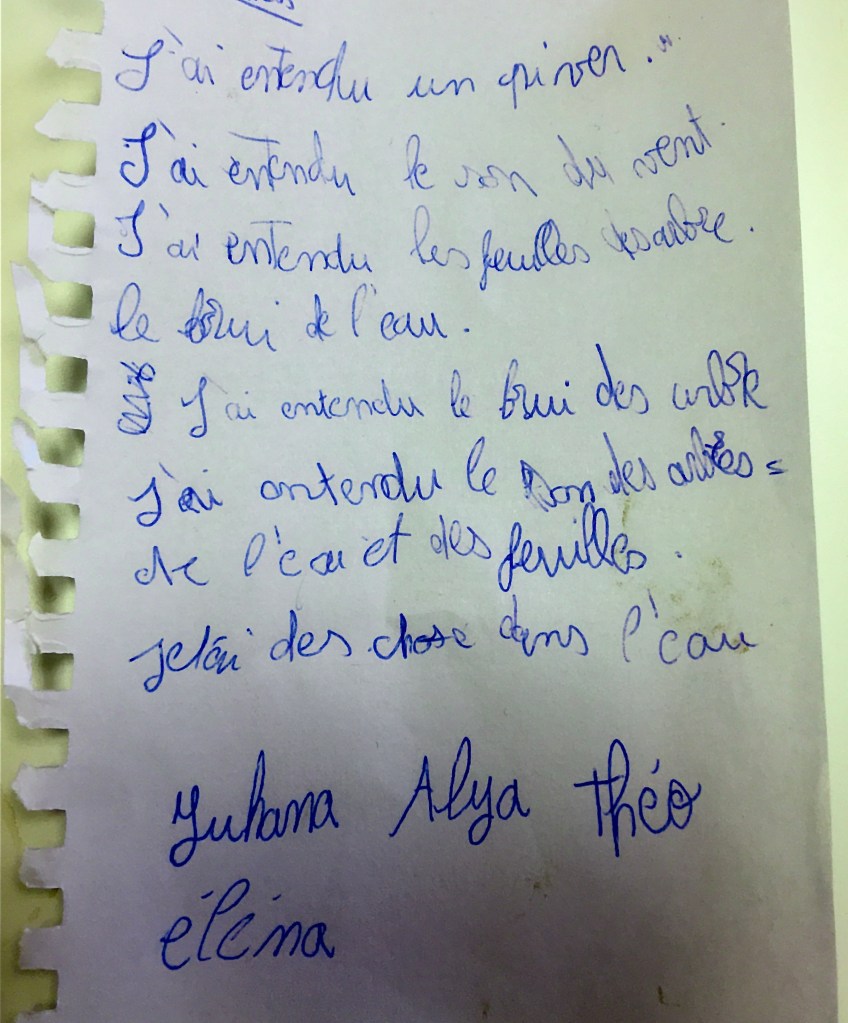 J'ai entendu un piver.
J'ai entendu le son du vent.
J'ai entendu les feuilles des arbre.
le brui de l'eau.
J'ai entendu le brui des arbre
J'ai entendu le son des arbres
de l'eau et des feuilles.
jetai des chose dans l'eau
Juliana Alya Théo
éléna